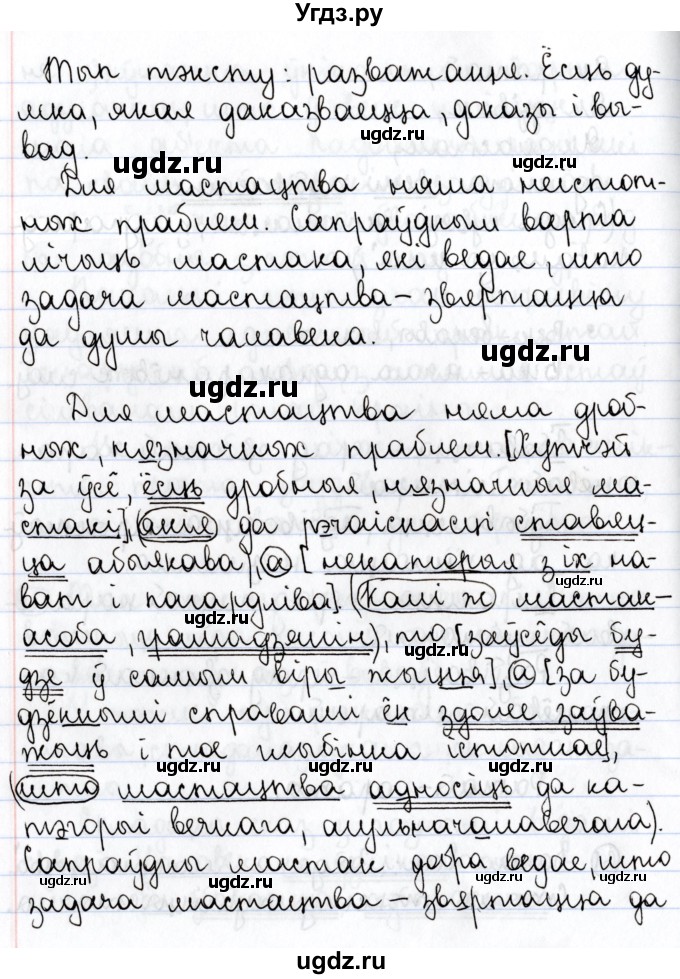 Угдз.ру
Тып тэксту: разважанне. Ёсць ду-
мка, якая даказваецца, доказы і вы-
ugdz.ru
вад.
ugdz.ru
ugdz.ru
Для мастацтва няма неістот-
ных праблем. Сапраўдным варта
лічыць мастака, які ведае, што
задача мастацтва – звяртацца
да душы чалавека.
ugdz.ru
ugdz.ru
Для мастацтва няма дроб-
ных, нязначных праблем. [Хутчэй
за ўсё, ёсць дробныя, нязначныя ма-
стакі], (якія да рэчаіснасці ставяц-
ца абыякава, а [некаторыя з іх на-
ugdz.ru
ват і пагардліва]. (Калі ж мастак –
ugdz.ru
асоба, грамадзянін), то [заўсёды бу-
дзе ў самым віры жыцця], а [за бу-
ugdz.ru
дзённымі справамі ён здолее заўва-
жыць і тое глыбінна істотнае],
ugdz.ru ugdz.ru
(што мастацтва адносіць да ка-
ugdz.ru
тэгорыі вечнага, агульначалавечага).
Сапраўдны мастак добра ведае, што
ugdz.ru ugdz.ru
задача мастацтва – звяртацца да
Угдз.ру